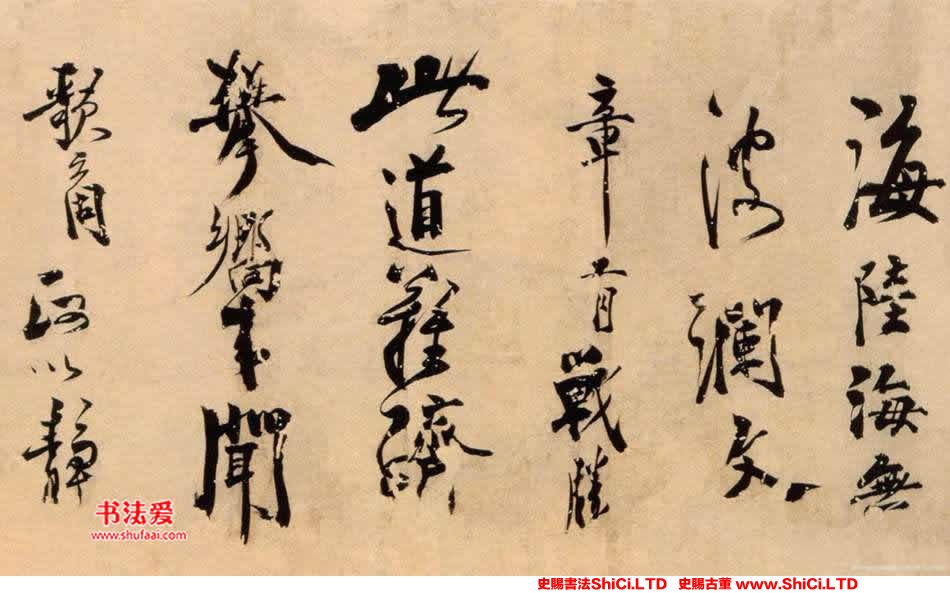 海陸海無
波瀾文
章首戰勝
此道難濟
攀響未聞
以靜
书法爱
www.shufaai.com
史賜書法ShiCi.LTD 史賜古董 www.ShiCi.LTD